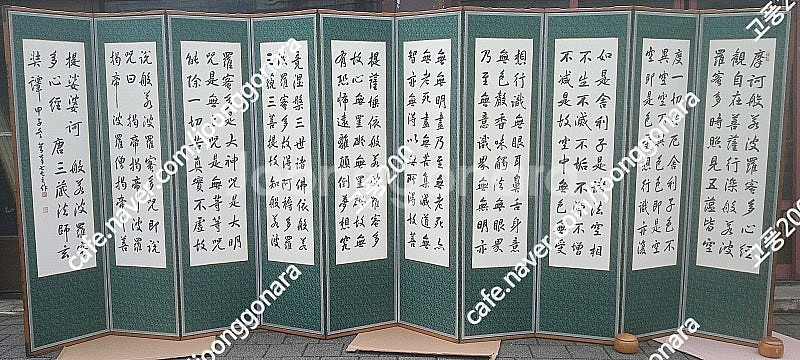 摩訶般若波羅蜜多心經
觀自在菩薩行深般若波
羅蜜多時照見五蘊皆空
度一切苦厄舍利子色不
異空空不異色色即是空
空即是色受想行識亦復
如是舍利子是諸法空相
不生不滅不垢不淨不增
不減是故空中無色無受
想行識無眼耳鼻舌身意
無色聲香味觸法無眼界
乃至無意識界無無明亦
無無明盡乃至無老死亦
無老死盡無苦集滅道無
智亦無得以無所得故菩
提薩埵依般若波羅蜜多
故心無罣礙無罣礙故無
有恐怖遠離顛倒夢想究
竟涅槃三世諸佛依般若
波羅蜜多故得阿耨多羅
三藐三菩提故知般若波
羅蜜多是大神呪是大明
呪是無上呪是無等等呪
能除一切苦真實不虛故
說般若波羅蜜多呪即說
呪曰 揭帝揭帝 般羅
揭帝 般羅僧揭帝 菩
提娑婆訶 般若波羅蜜
多心經 唐三藏法師玄
奘譯 甲子
cafe.naver.com/joonggonara
cafe.naver.com/joonggonara
cafe.naver.com/joonggonara
joonggonara
고풍200
고풍200
고풍200